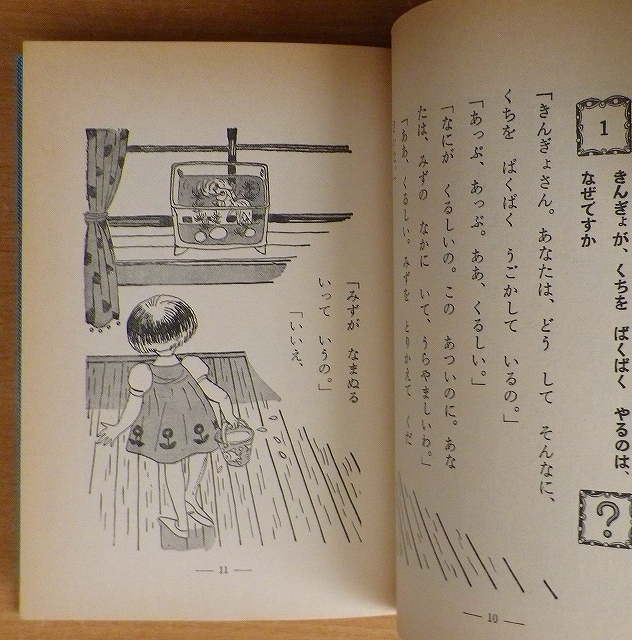 1
きんぎょが、くちを ぱくぱく やるのは、
なぜですか
?
「きんぎょさん。あなたは、どう して そんなに、
くちを ぱくぱく うごかして いるの。」
「あっぷ、あっぷ。ああ、くるしい。」
「なにが くるしいの。この あついのに。あな
たは、みずの なかに いて、うらやましいわ。」
「ああ、くるしい。みずを とりかえて くだ
— 10 —
「みずが なまぬる
いって いうの。」
「いいえ、
— 11 —